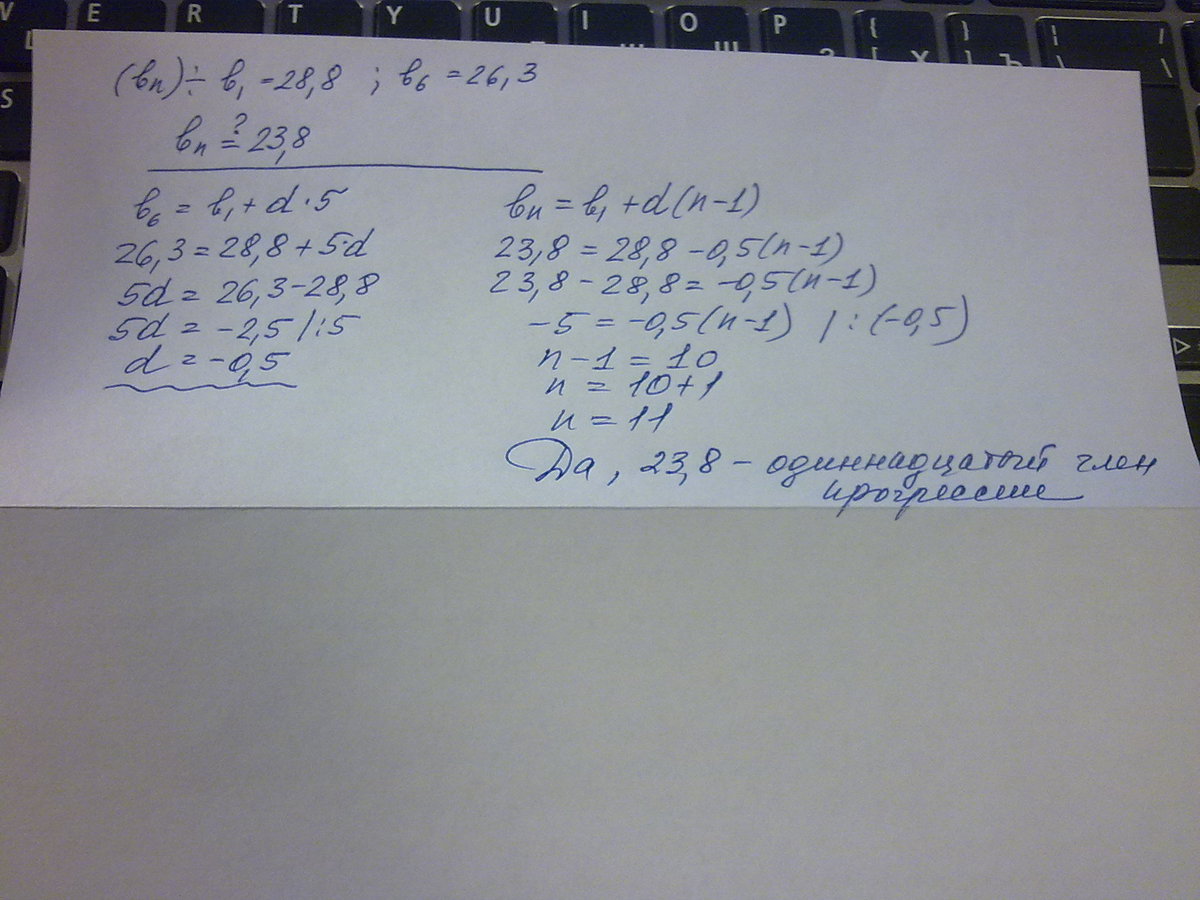 W E R T Y U I O P { } | /
S Ш Щ З [ Х ] Ъ \ \
(bn) ÷ b₁ = 28,8 ; b₆ = 26,3
bn ?= 23,8
b₆ = b₁ + d · 5
26,3 = 28,8 + 5·d
5d = 26,3 - 28,8
5d = -2,5 / : 5
d = -0,5
bn = b₁ + d(n-1)
23,8 = 28,8 - 0,5(n-1)
23,8 - 28,8 = -0,5(n-1)
-5 = -0,5(n-1) / : (-0,5)
n - 1 = 10
n = 10+1
n = 11
Да, 23,8 - одиннадцатый член
прогрессии